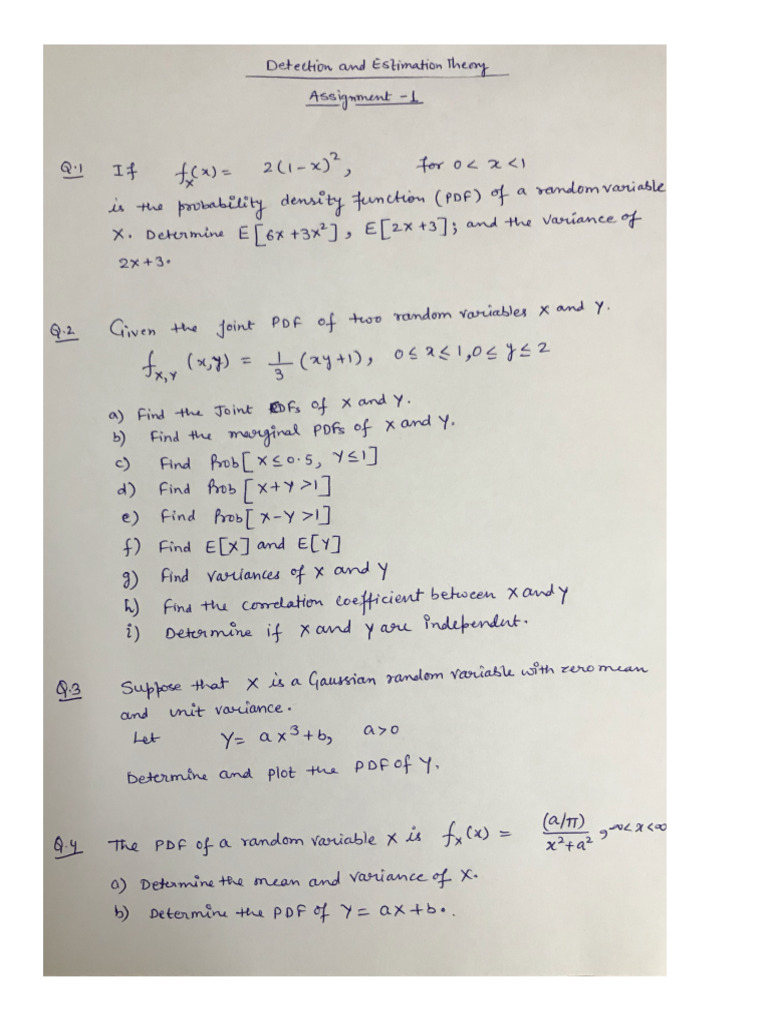 Detection and Estimation Theory
Assignment - 1
Q.1 If fₓ(x) = 2(1-x)², for 0 < x < 1
is the probability density function (PDF) of a random variable
X. Determine E[6X+3X²], E[2X+3]; and the variance of
2X+3.
Q.2 Given the joint PDF of two random variables X and Y.
f_{X,Y}(x,y) = 1/3 (xy+1), 0 ≤ x ≤ 1, 0 ≤ y ≤ 2
a) Find the Joint CDFs of X and Y.
b) Find the marginal PDFs of X and Y.
c) Find Prob[X ≤ 0.5, Y ≤ 1]
d) Find Prob[X+Y > 1]
e) Find Prob[X-Y > 1]
f) Find E[X] and E[Y]
g) Find variances of X and Y
h) Find the correlation coefficient between X and Y
i) Determine if X and Y are independent.
Q.3 Suppose that X is a Gaussian random variable with zero mean
and unit variance.
Let Y = ax³+b, a>0
Determine and plot the PDF of Y.
Q.4 The PDF of a random variable X is fₓ(x) = (a/π)/(x²+a²), -∞<x<∞
a) Determine the mean and variance of X.
b) Determine the PDF of Y = aX+b.